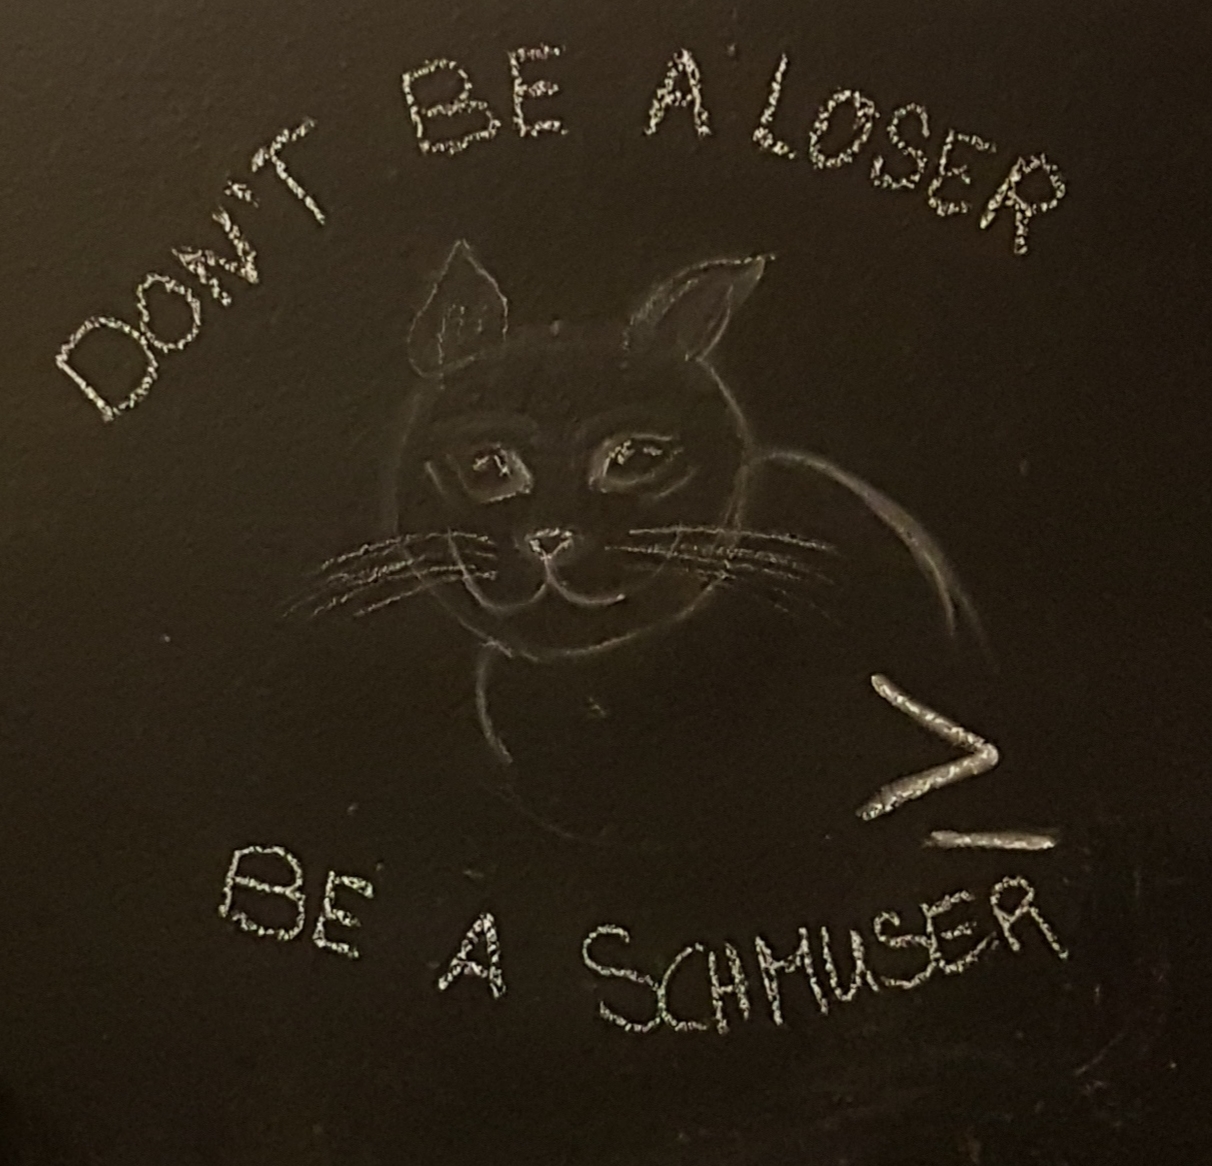 DON'T BE A LOSER
>_
BE A SCHMUSER